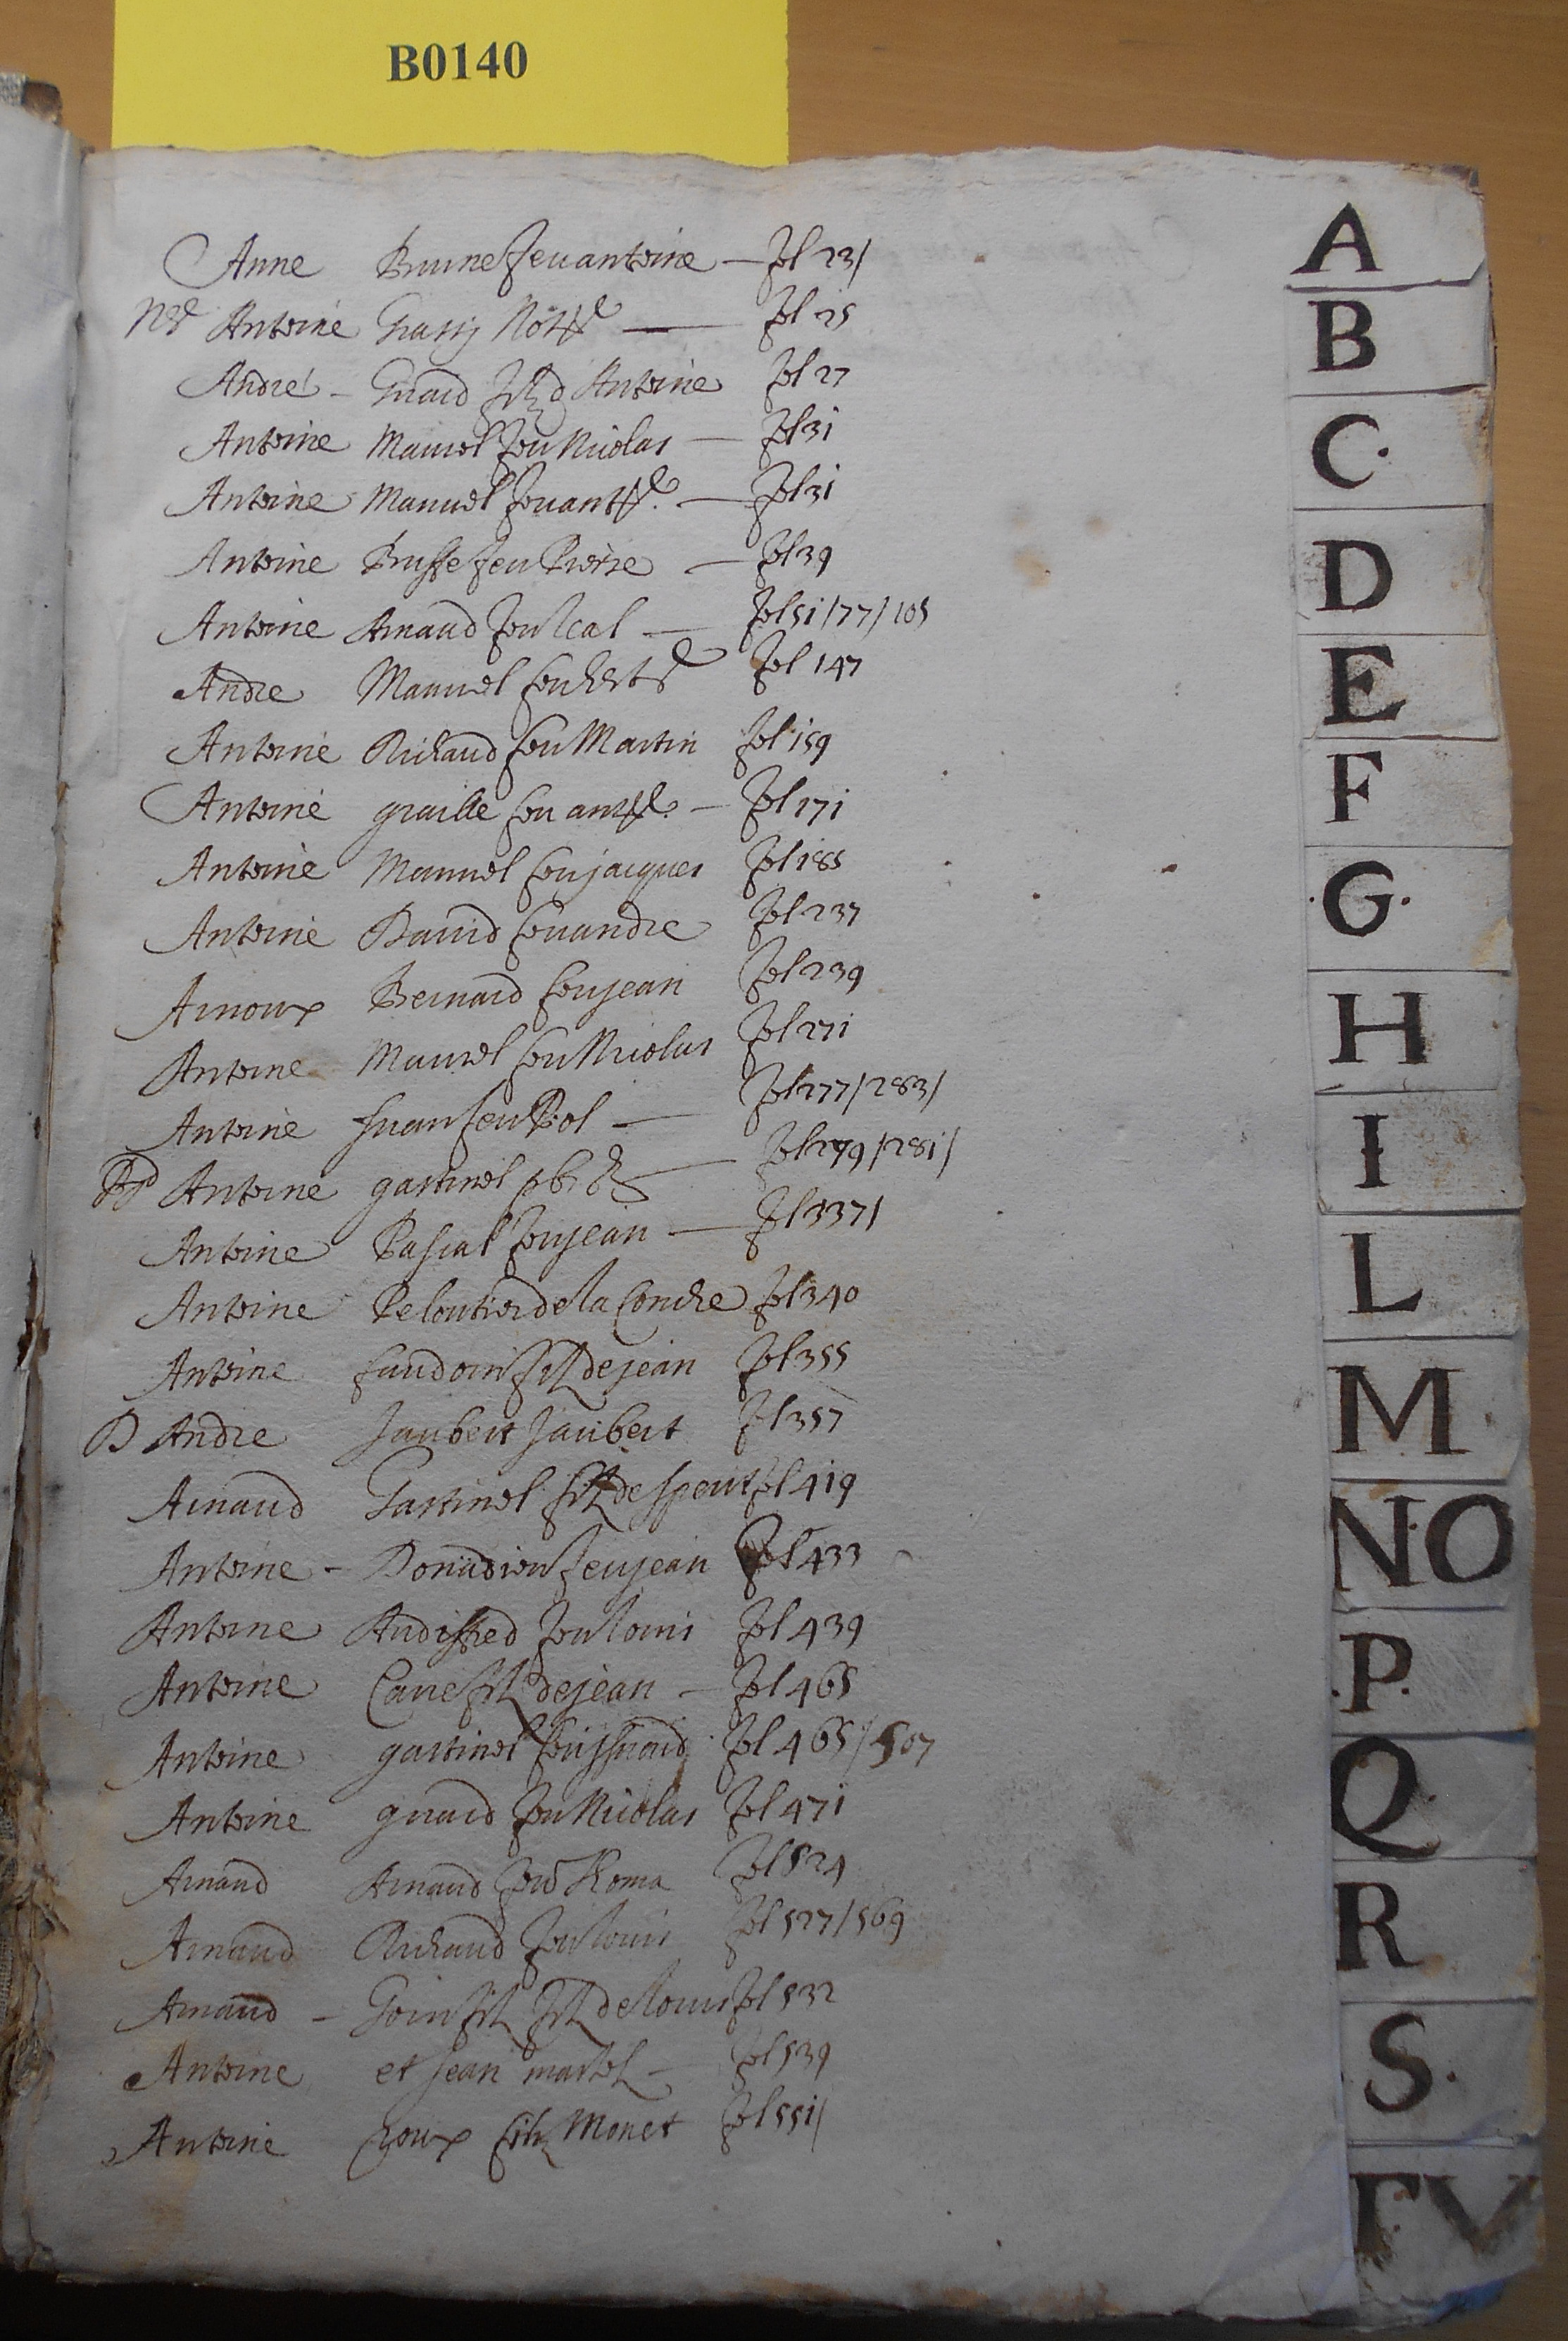 B0140
Anne Brune feu antoine — fol 23/
Me Antoine Grassy Notre — fol 25
André - Girard filz d Antoine fol 27
Antoine Manuel feu Nicolas — fol 31
Antoine Manuel feu antne. — fol 31
Antoine feu Pierre — fol 39
Antoine Arnaud feu — fol 51/77/105
Andre Manuel feu fol 147
Antoine Richaud feu Martin fol 159
Antoine graille feu antne. — fol 171
Antoine Manuel feu jacques fol 185
Antoine David feu andre fol 237
Arnoux Bernard feu jean fol 239
Antoine Manuel feu Nicolas fol 271
Antoine feu Pol — fol 277/283/
Antoine gastinel pbre — fol 279/281/
Antoine Pascal feu jean — fol 337/
Antoine Peloutier de la Conche fol 340
Antoine filz de jean fol 355
D Andre Jaubert Jaubert fol 357
Arnaud Gastinel filz de fol 419
Antoine - Donadieu feu jean fol 433
Antoine Audiffred feu louis fol 439
Antoine filz de jean — fol 465
Antoine gastinel feu fol 465/507
Antoine girard feu Nicolas fol 471
Arnaud Arnaud feu Roma fol 524
Arnaud Richaud feu louis fol 527/569
Arnaud - filz de louis fol 532
Antoine et jean martel — fol 539
Antoine roux filz Monet fol 551/
A
B
C.
D
E
F
.G.
H
I
L
M
NO
.P.
Q
R
S.
TV